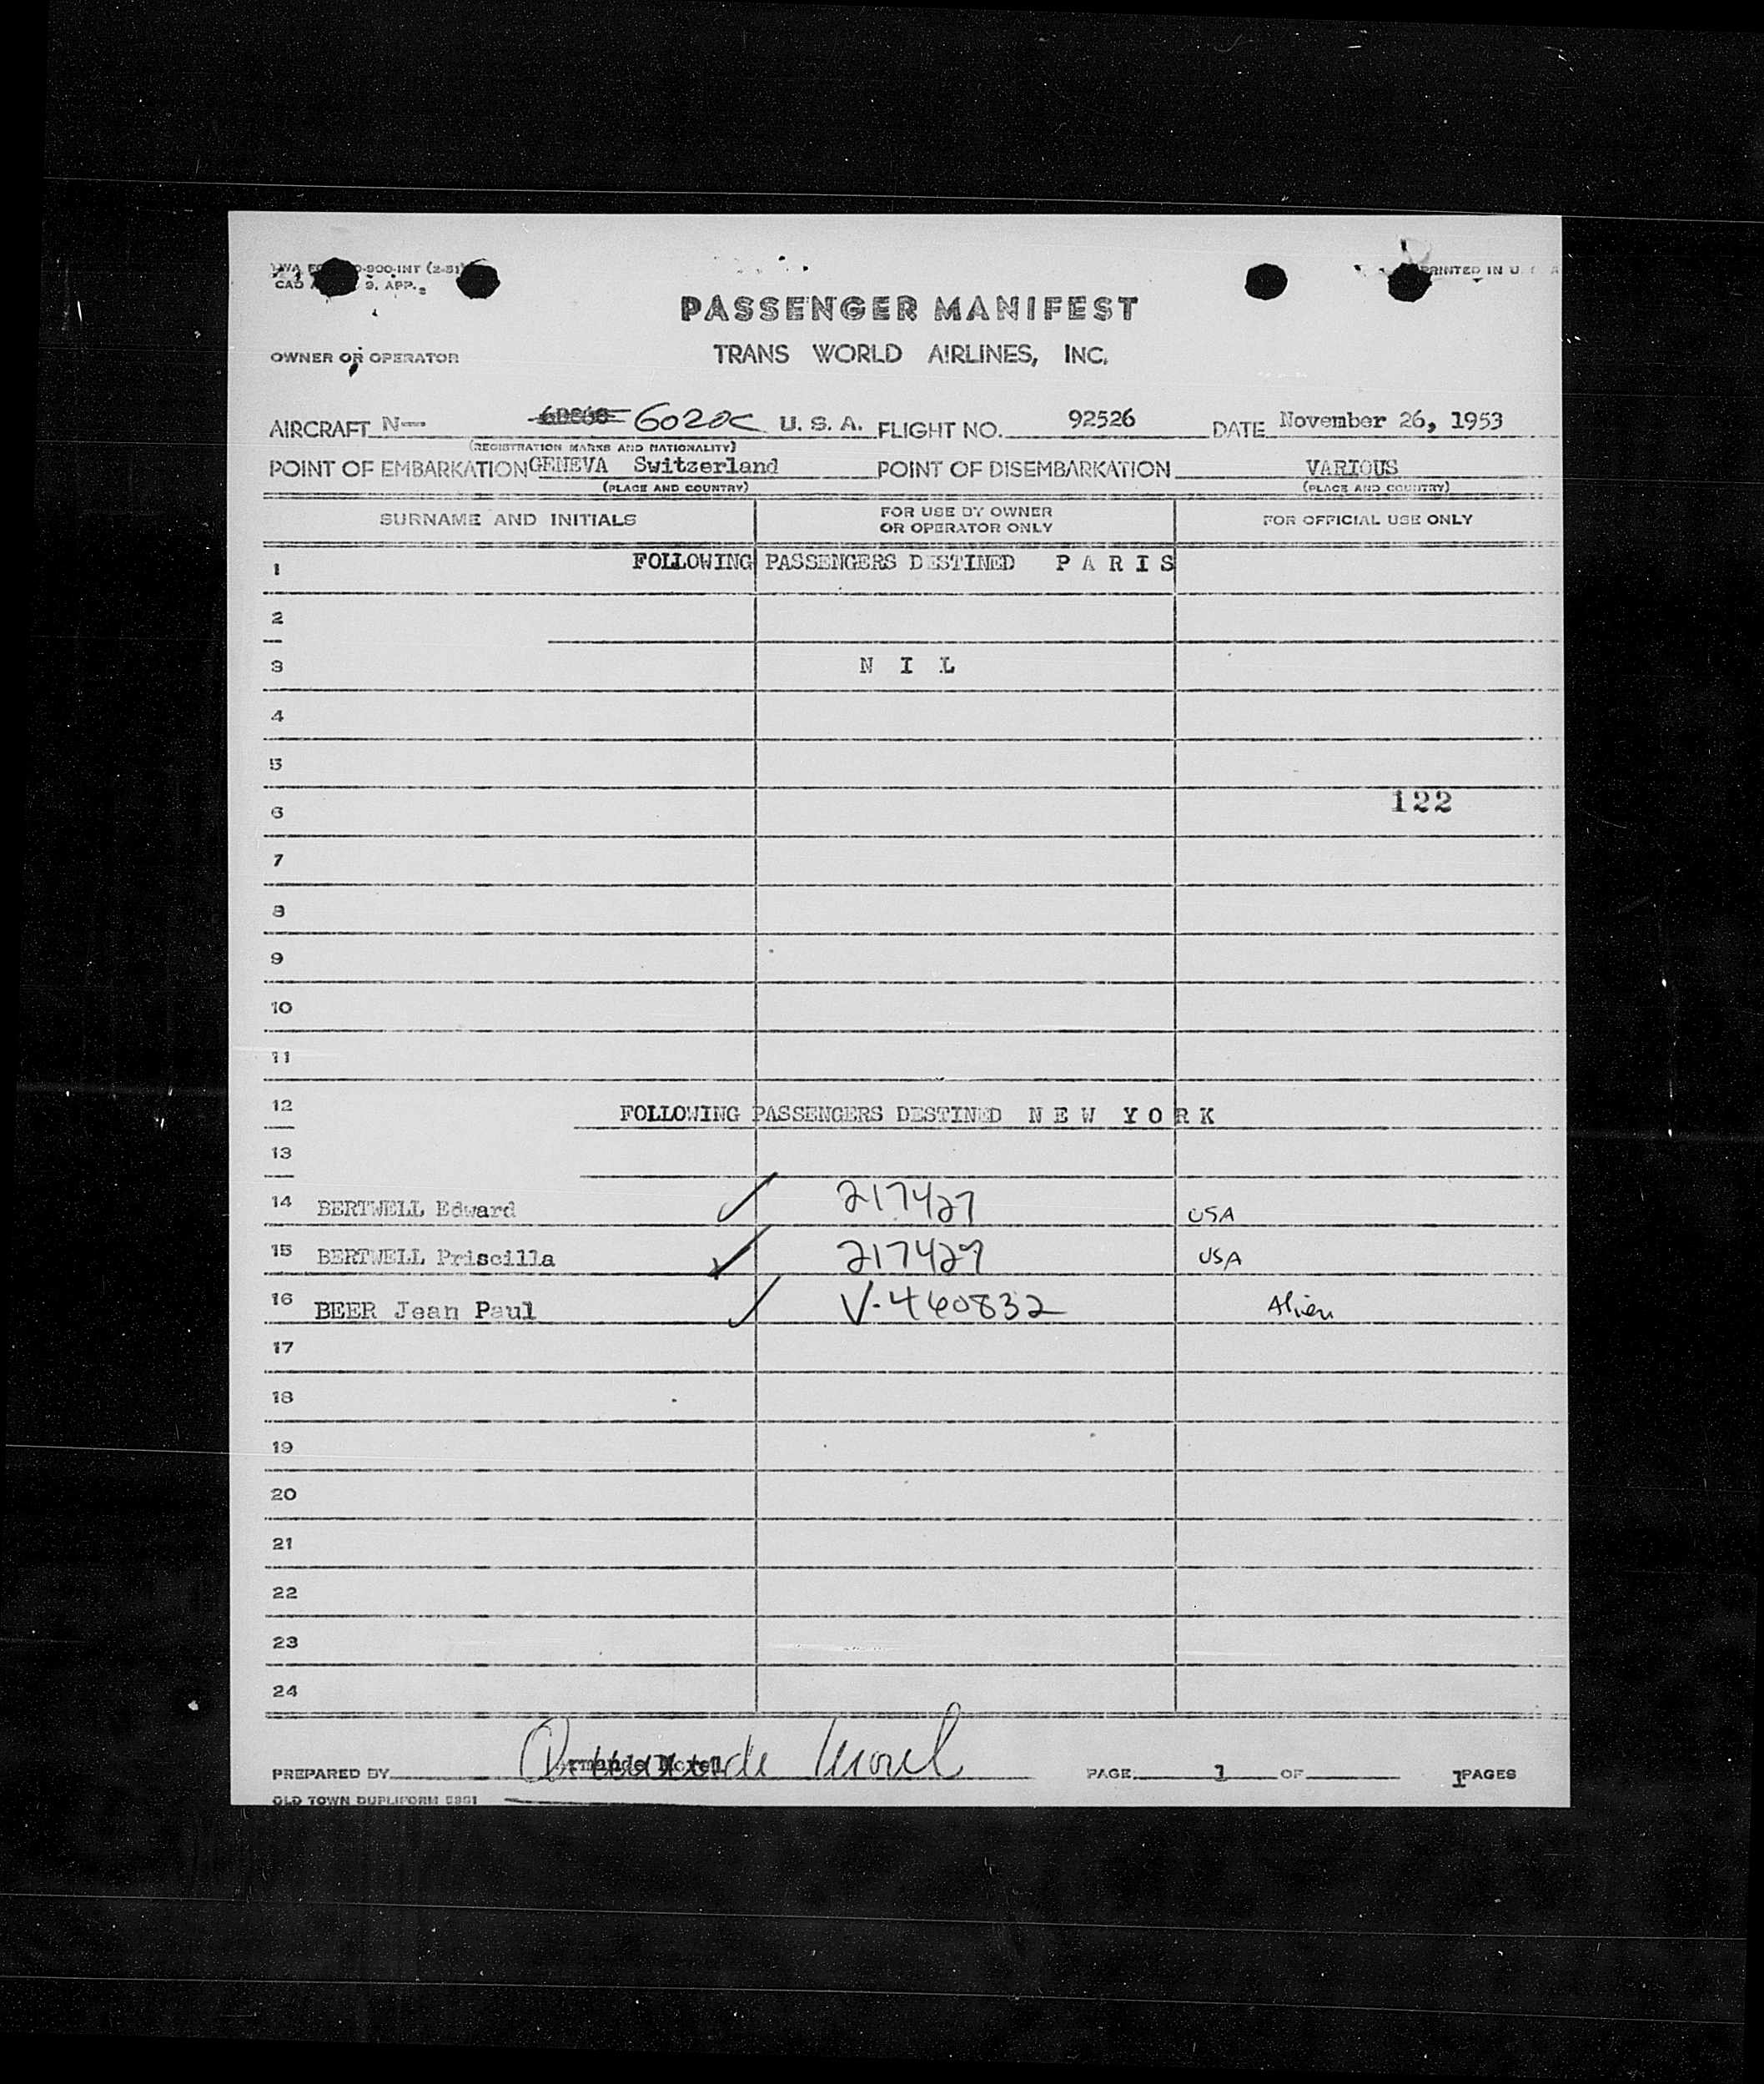 -900-INT (2-51) PRINTED IN U. S. A
CAD 9. APP.
PASSENGER MANIFEST
OWNER OR OPERATOR TRANS WORLD AIRLINES, INC.
AIRCRAFT N- 6020C U. S. A. FLIGHT NO. 92526 DATE November 26, 1953
(REGISTRATION MARKS AND NATIONALITY)
POINT OF EMBARKATION GENEVA Switzerland POINT OF DISEMBARKATION VARIOUS
(PLACE AND COUNTRY) (PLACE AND COUNTRY)
SURNAME AND INITIALS FOR USE BY OWNER OR OPERATOR ONLY FOR OFFICIAL USE ONLY
1 FOLLOWING PASSENGERS DESTINED P A R I S
2
3 N I L
4
5
6 122
7
8
9
10
11
12 FOLLOWING PASSENGERS DESTINED N E W Y O R K
13
14 BERTWELL Edward 217427 USA
15 BERTWELL Priscilla 217429 USA
16 BEER Jean Paul V-460832 Alien
17
18
19
20
21
22
23
24
PREPARED BY Armande Morel PAGE 1 OF 1 PAGES
OLD TOWN DUPLIFORM